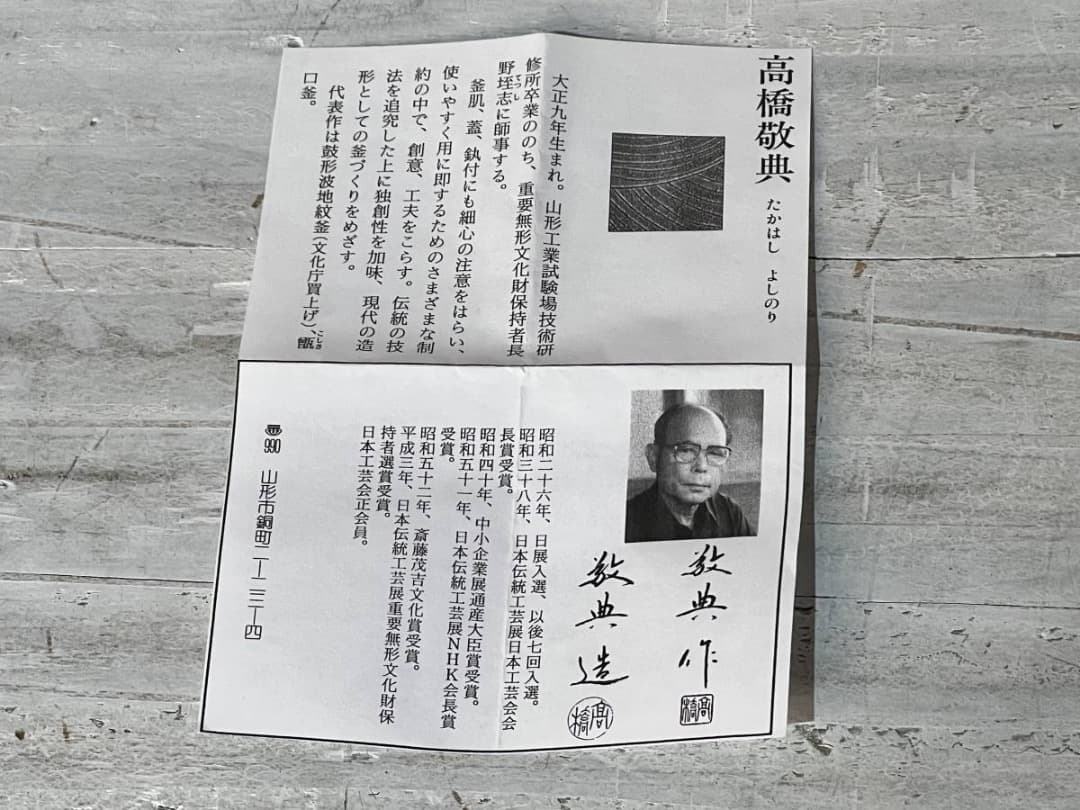 高橋敬典 たかはし よしのり
大正九年生まれ。山形工業試験場技術研
修所卒業ののち、重要無形文化財保持者長
野垤志に師事する。
てつし
釜肌、蓋、釻付にも細心の注意をはらい、
使いやすく用に即するためのさまざまな制
約の中で、創意、工夫をこらす。伝統の技
法を追究した上に独創性を加味、現代の造
形としての釜づくりをめざす。
代表作は鼓形波地紋釜(文化庁買上げ)、甑
こしき
口釜。
敬典作
高橋
敬典造
高橋
昭和二十六年、日展入選、以後七回入選。
昭和三十八年、日本伝統工芸展日本工芸会会
長賞受賞。
昭和四十年、中小企業展通産大臣賞受賞。
昭和五十一年、日本伝統工芸展NHK会長賞
受賞。
昭和五十二年、斎藤茂吉文化賞受賞。
平成三年、日本伝統工芸展重要無形文化財保
持者選賞受賞。
日本工芸会正会員。
〠990 山形市銅町二―二三―四